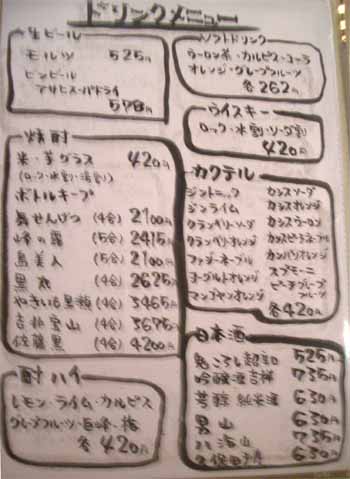 ドリンクメニュー
生ビール
モルツ 525円
ビンビール
アサヒスーパードライ
578円
焼酎
米・芋グラス 420円
(ロック・水割・湯割)
ボトルキープ
無せんげつ (4合) 2100円
峰の露 (5合) 2415円
島美人 (5合) 2100円
黒丸 (4合) 2625円
やきいも黒瀬 (4合) 3465円
吉兆宝山 (4合) 3675円
佐藤黒 (4合) 4200円
酎ハイ
レモン・ライム・カルピス
グレープフルーツ・巨峰・梅
各420円
ソフトドリンク
ウーロン茶・カルピス・コーラ
オレンジ・グレープフルーツ
各262円
ウイスキー
ロック・水割・ソーダ割
420円
カクテル
ジントニック カシスソーダ
ジンライム カシスオレンジ
クランベリーソーダ カシスウーロン
クランベリーオレンジ カシスピーチネーブル
ファジーネーブル カンパリオレンジ
ヨーグルトオレンジ スプモーニ
マンゴヤンオレンジ ピーチグレープフルーツ
各420円
日本酒
鬼ころし超辛 525円
吟醸酒吉祥 735円
純米酒 630円
男山 630円
八海山 735円
久保田千寿 630円